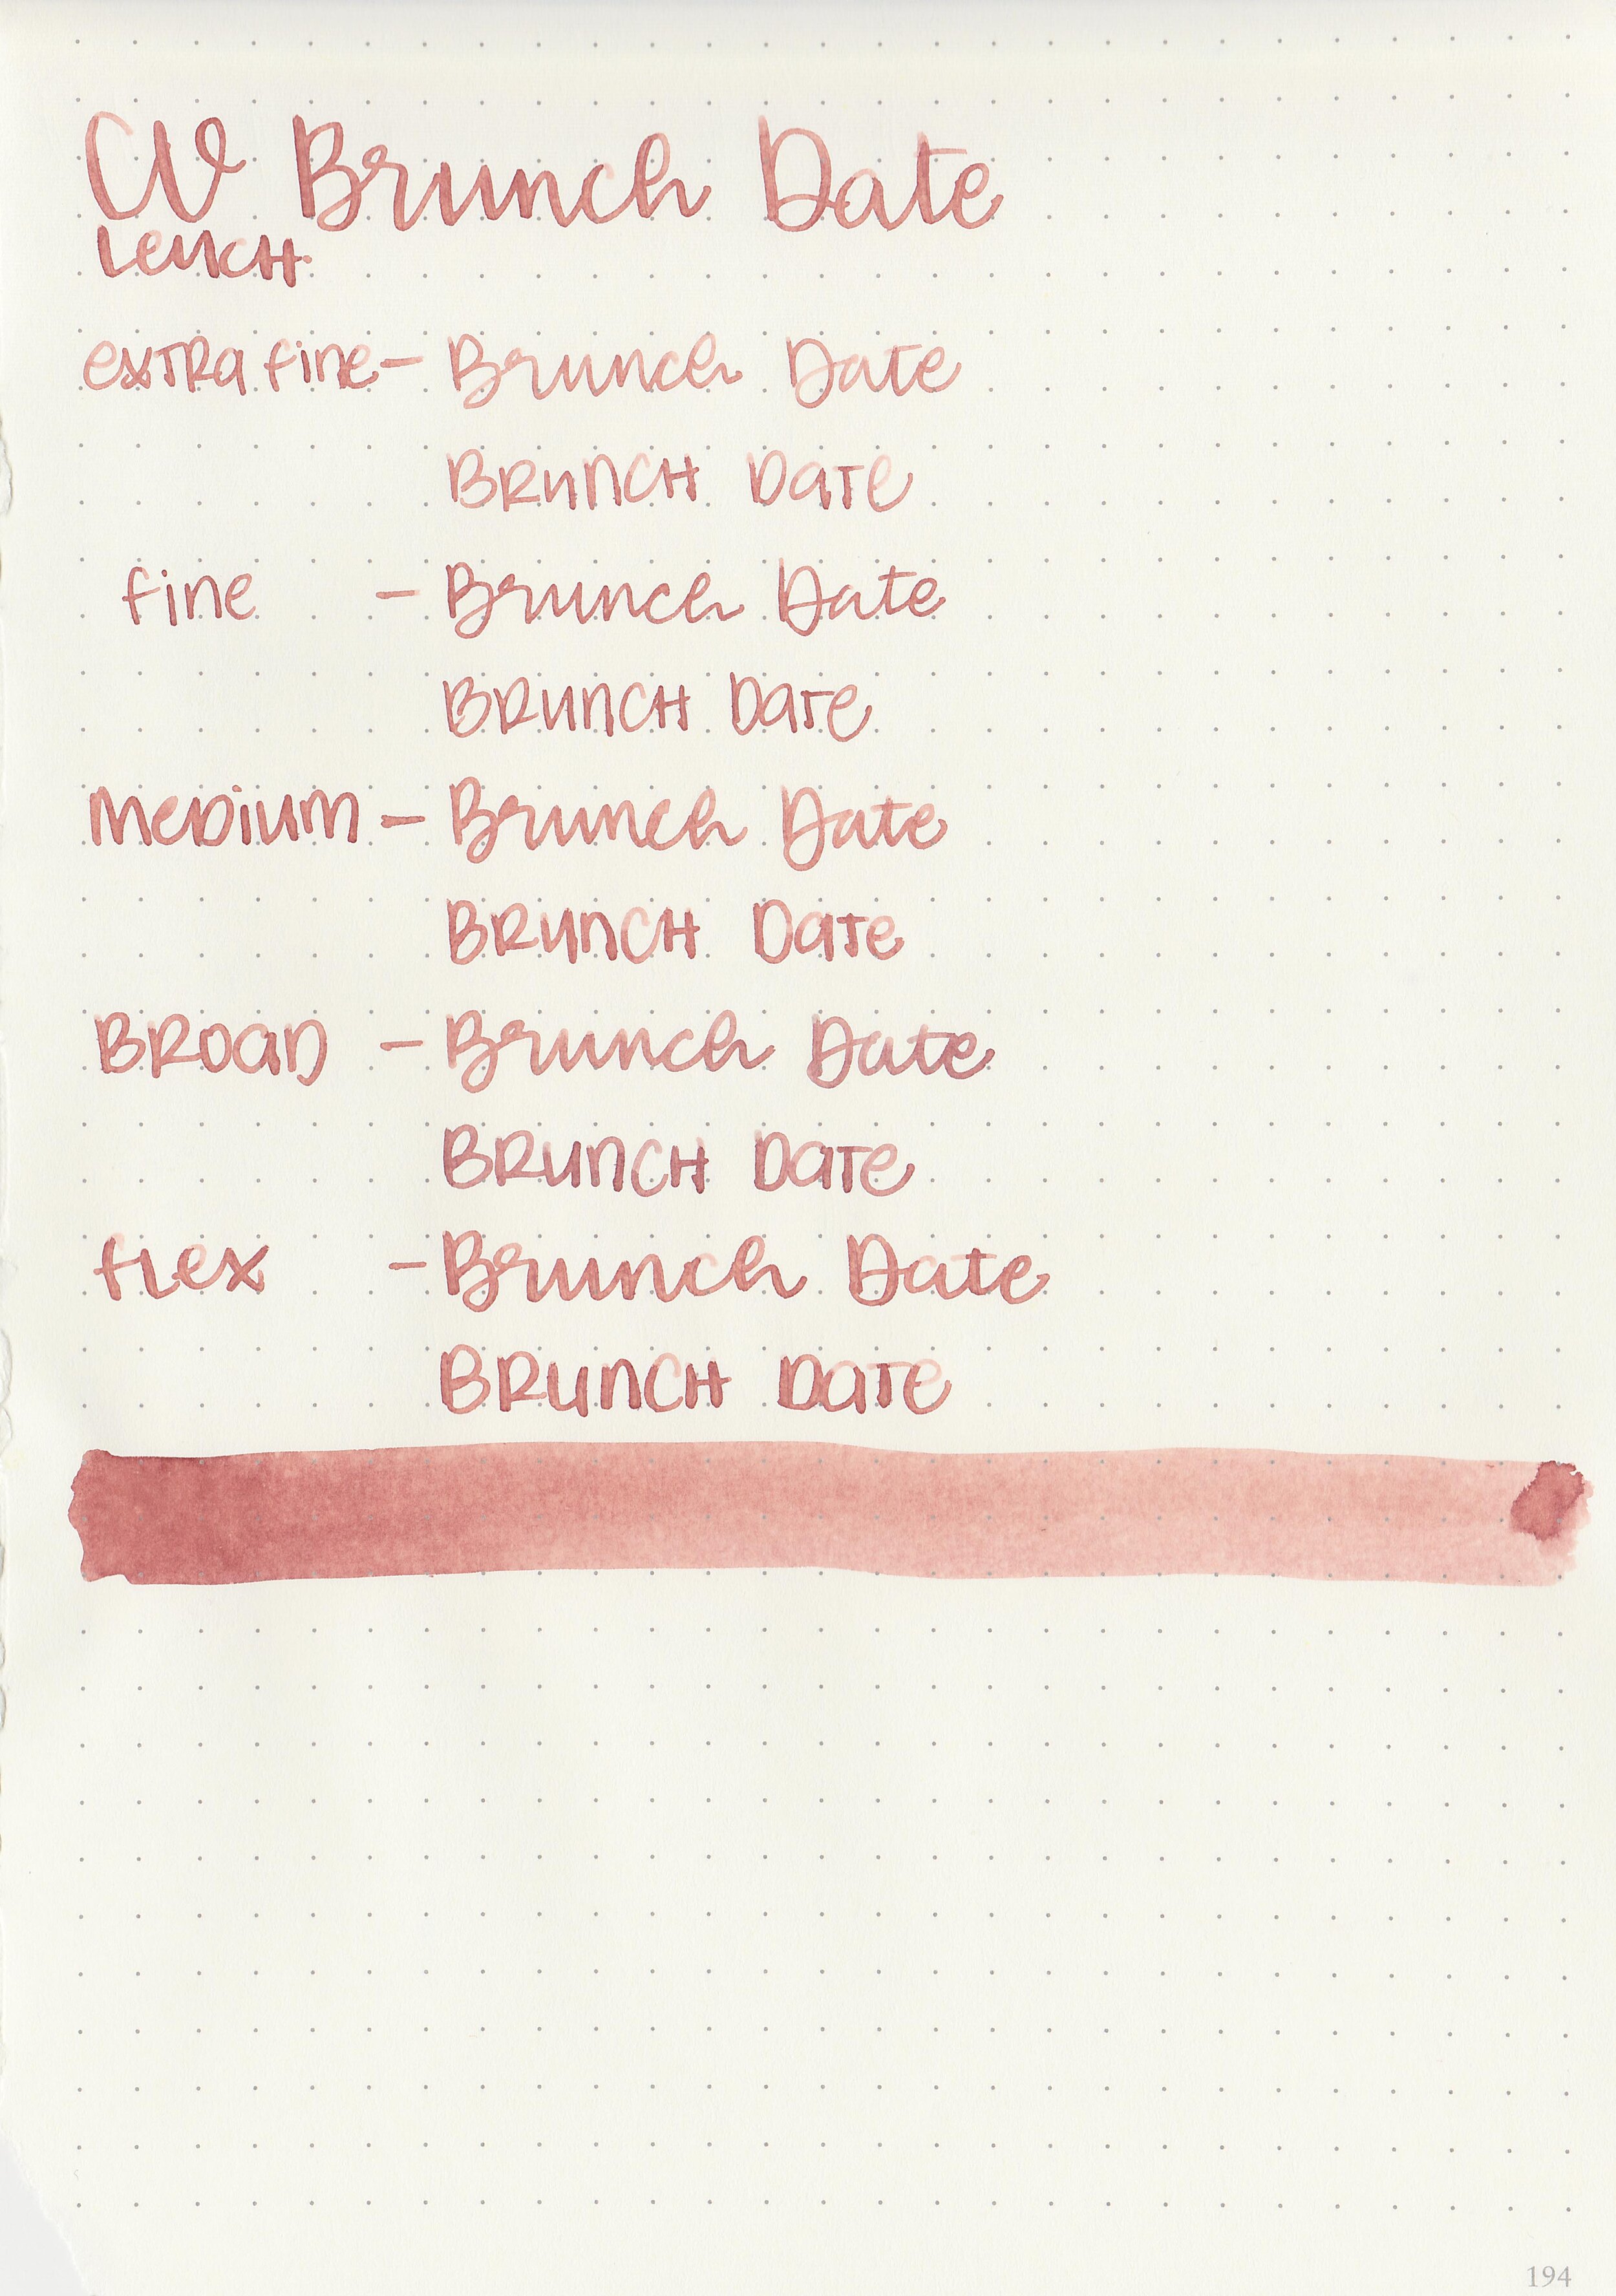 CV Brunch Date
Leuch.
extra fine - Brunch Date
Brunch Date
fine - Brunch Date
Brunch Date
Medium - Brunch Date
Brunch Date
Broad - Brunch Date
Brunch Date
flex - Brunch Date
Brunch Date
194